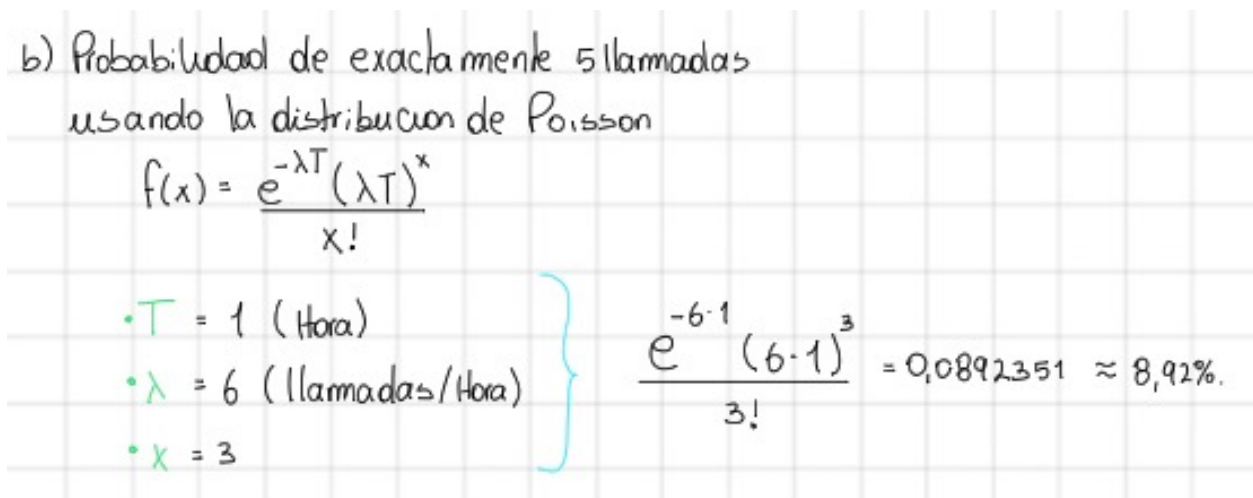 b) Probabilidad de exactamente 5 llamadas
usando la distribucion de Poisson
f(x) = e^{-λT} (λT)^x / x!
• T = 1 (Hora)
• λ = 6 (llamadas/Hora)
• x = 3
e^{-6·1} (6·1)^3 / 3! = 0,0892351 ≈ 8,92%.